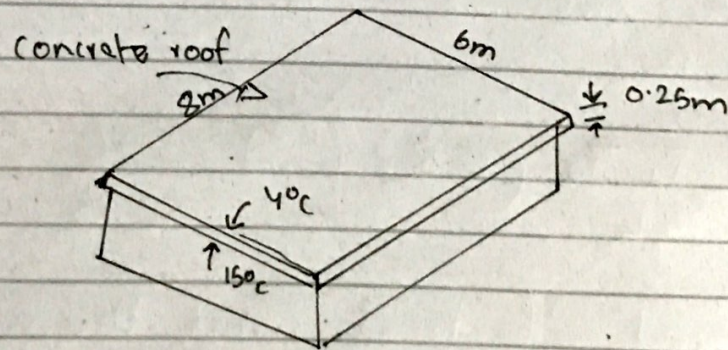 concrete roof
8m
6m
0.25m
4°C
15°C